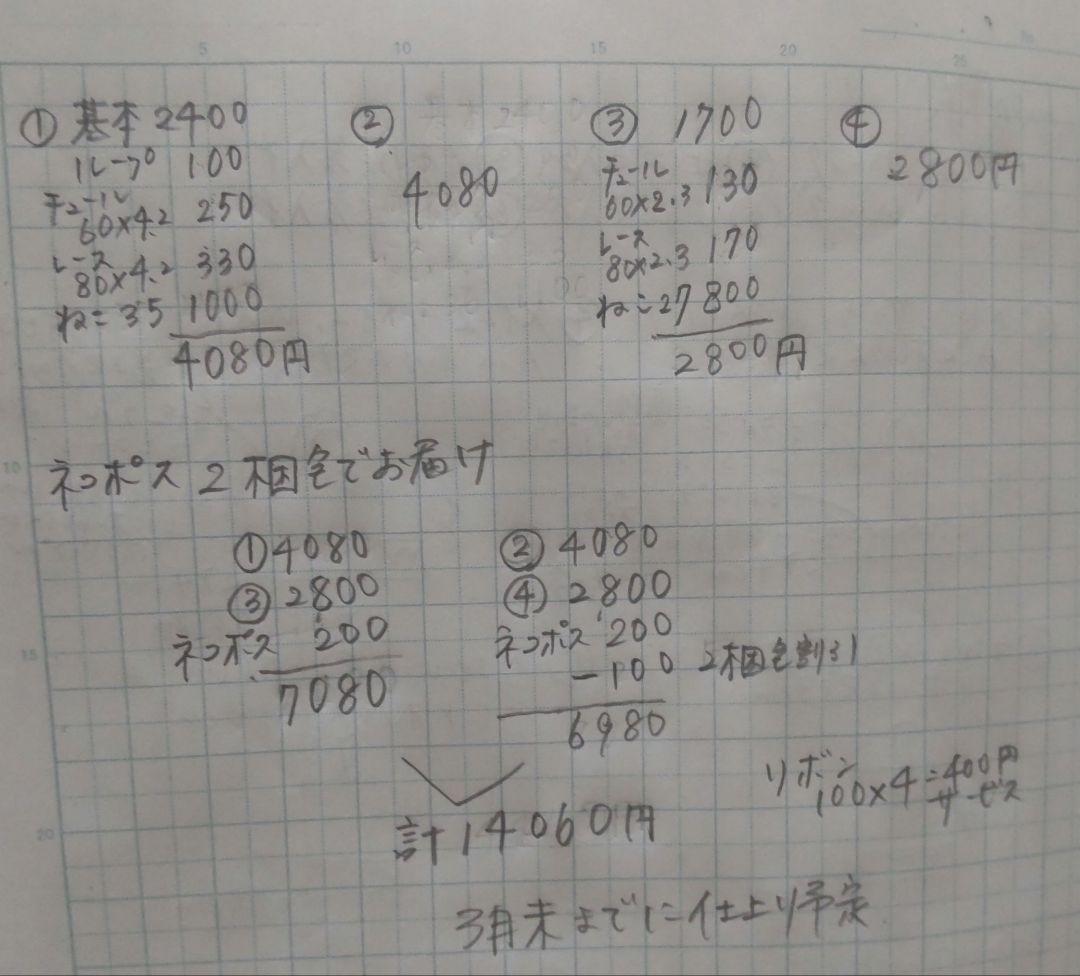 5 10 15 20 25
① 基本 2400
ループ 100
チュール
60×4.2 250
レース
80×4.2 330
ねこ 35 1000
4080円
②
4080
③ 1700
チュール
60×2.3 130
レース
80×2.3 170
ねこ27 800
2800円
④
2800円
10
ネコポス 2梱包でお届け
① 4080
③ 2800
ネコポス 200
7080
② 4080
④ 2800
ネコポス 200
-100 2梱包割引
6980
15
リボン
100×4=400円
サービス
20
計 14060円
3月末までに仕上り予定